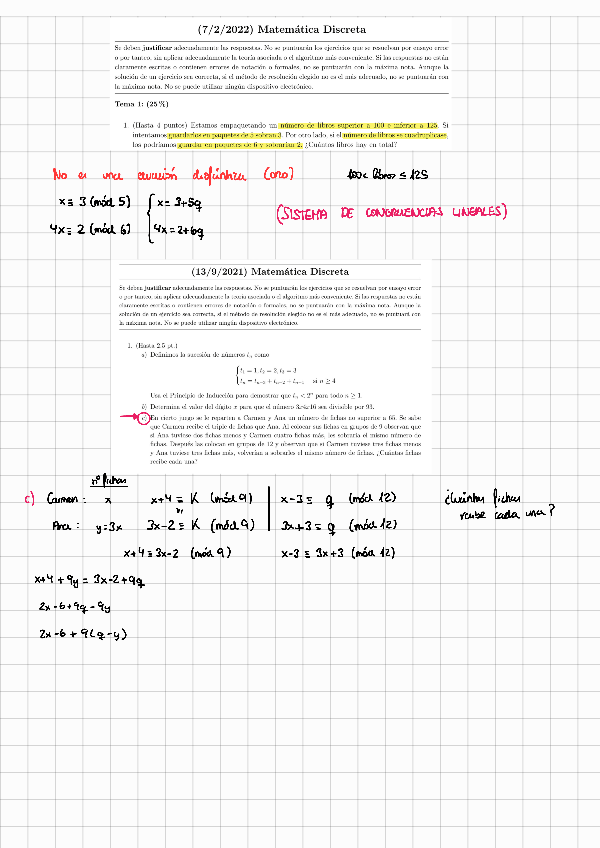 (7/2/2022) Matemática Discreta
Se deben justificar adecuadamente las respuestas. No se puntuarán los ejercicios que se resuelvan por ensayo error
o por tanteo, sin aplicar adecuadamente la teoría asociada o el algoritmo más conveniente. Si las respuestas no están
claramente escritas o contienen errores de notación o formales, no se puntuarán con la máxima nota. Aunque la
solución de un ejercicio sea correcta, si el método de resolución elegido no es el más adecuado, no se puntuarán con
la máxima nota. No se puede utilizar ningún dispositivo electrónico.
Tema 1: (25 %)
1. (Hasta 4 puntos) Estamos empaquetando un número de libros superior a 100 e inferior a 125. Si
intentamos guardarlos en paquetes de 5 sobran 3. Por otro lado, si el número de libros se cuadruplicase,
los podríamos guardar en paquetes de 6 y sobrarían 2. ¿Cuántos libros hay en total?
No es una ecuación diofántica (ono) 100 < libros ≤ 125
x ≡ 3 (mód 5) { x = 3+5q
(SISTEMA DE CONGRUENCIAS LINEALES)
4x ≡ 2 (mód 6) 4x = 2+6q
(13/9/2021) Matemática Discreta
Se deben justificar adecuadamente las respuestas. No se puntuarán los ejercicios que se resuelvan por ensayo error
o por tanteo, sin aplicar adecuadamente la teoría asociada o el algoritmo más conveniente. Si las respuestas no están
claramente escritas o contienen errores de notación o formales, no se puntuarán con la máxima nota. Aunque la
solución de un ejercicio sea correcta, si el método de resolución elegido no es el más adecuado, no se puntuará con
la máxima nota. No se puede utilizar ningún dispositivo electrónico.
1. (Hasta 2.5 pt.)
a) Definimos la sucesión de números tₙ como
{ t₁ = 1, t₂ = 2, t₃ = 3
tₙ = tₙ₋₃ + tₙ₋₂ + tₙ₋₁ si n ≥ 4
Usa el Principio de Inducción para demostrar que tₙ < 2ⁿ para todo n ≥ 1.
b) Determina el valor del dígito x para que el número 3x4x16 sea divisible por 93.
c) En cierto juego se le reparten a Carmen y Ana un número de fichas no superior a 65. Se sabe
que Carmen recibe el triple de fichas que Ana. Al colocar sus fichas en grupos de 9 observan que
si Ana tuviese dos fichas menos y Carmen cuatro fichas más, les sobraría el mismo número de
fichas. Después las colocan en grupos de 12 y observan que si Carmen tuviese tres fichas menos
y Ana tuviese tres fichas más, volverían a sobrarles el mismo número de fichas. ¿Cuántas fichas
recibe cada una?
nº fichas
c) Carmen: x x+4 ≡ K (mód 9) x-3 ≡ q (mód 12) ¿Cuántas fichas
recibe cada una?
Ana: y=3x 3x-2 ≡ K (mód 9) 3x+3 ≡ q (mód 12)
x+4 ≡ 3x-2 (mód 9) x-3 ≡ 3x+3 (mód 12)
x+4 + 9y = 3x-2+9q
2x-6+9q-9y
2x-6 + 9(q-y)